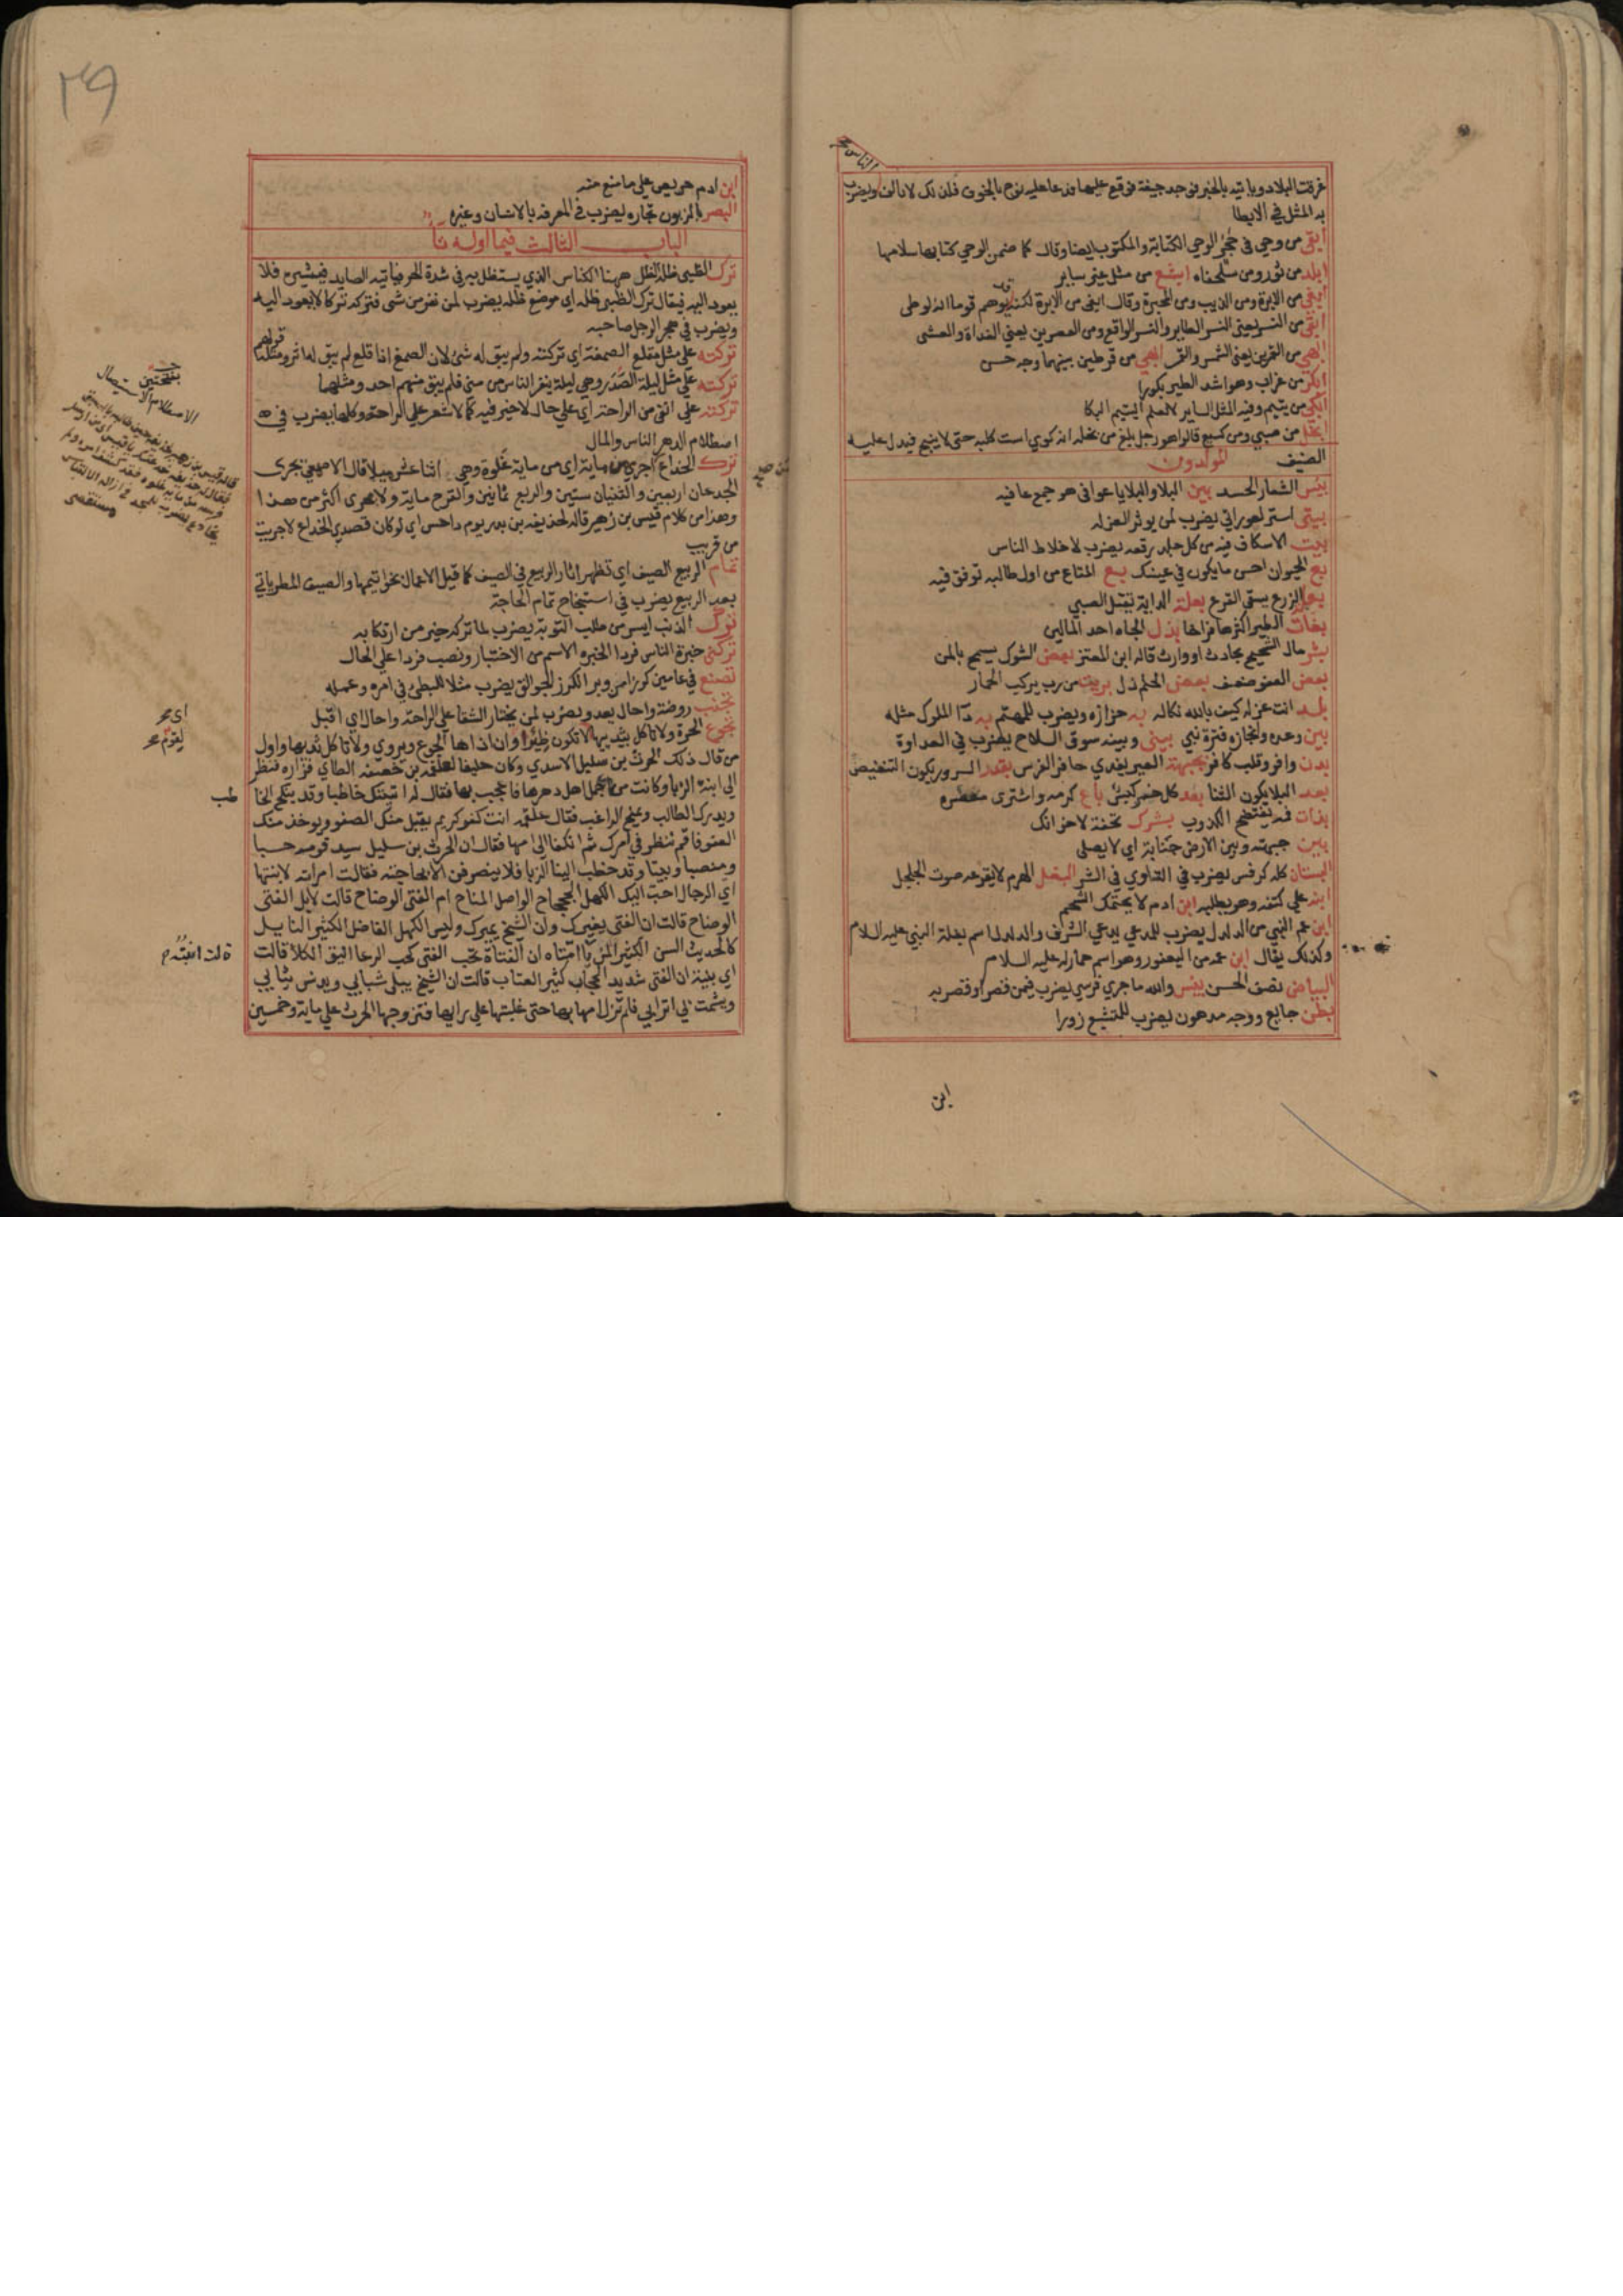 غرقت البلاد وياتيه بالخبر فوجد جيفة فوقع عليها فدعا عليه نوح بالخوف فلذلك لا يالف
الناس
ويضرب
به المثل في الابطا
ابقى من وحي في حجر الوحي الكتابة والمكتوب ايضا وقال كما ضمن الوحي كتابها سلامها
ابلد من ثور ومن سلحفاه ابشع من مثل غير ساير
ابغى من الابرة ومن الزبيب ومن المحبرة وقال ابغى من الابرة لكنه يوهم قوما انه لوطى
ابقى من النسرين يعني النسر الطاير والنسر الواقع ومن العصرين يعني الغداة والعشى
ابهى من القمرين يعني الشمس والقمر ابهى من قرطين بينهما وجه حسن
ابكر من غراب وهو اشد الطير بكورا
ابكى من يتيم وفيه المثل الساير لا تعلم اليتيم البكا
ابخل من صبي ومن كسع قالوا هو رجل بلغ من بخله انه كوي است كلبه حتى لا ينبح فيدل عليه
الضيف المولدون
بيس الشعار الحسد بين البلا والبلايا عوافي هو جمع عافيه
بيتي استر لعوراتي يضرب لمن يوثر العزله
بيت الاسكاف فيه من كل جلد رقعه يضرب لاخلاط الناس
بع الحيوان احسن ما يكون في عينك بع المتاع من اول طالبه توفق فيه
بعلة الزرع يسقى القرع بعلة الداية يقتل الصبي
بغاث الطير اكثرها فراخا بذل الجاه احد المالين
بشر مال الشحيح بحادث او وارث قاله ابن المعتز بعض الشوك يسمح بالمن
بعض العفو ضعف بعض الحلم ذل بريت من رب يركب الحمار
بلد انت غزاله كيف بالله نكاله به حرارة ويضرب للمتهم به دا الملوك مثله
بين وعده وانجازه فترة نبي بيني وبينه سوق السلاح يضرب في العداوة
بدن وافر وقلب كافر بجبهة العير يفدي حافر الفرس بقدر السرور يكون التنغيص
بعد البلا يكون الثنا بعد كل خسر كيس باع كرمه واشترى معصره
بذات فمه يفتضح الكذوب بشرك تحفة لاخوانك
بين جبهته وبين الارض جناية اي لا يصلى
البستان كله كرفس يضرب في التساوي في الشر البغل الهرم لا يفزعه صوت الجلجل
ابنه على كتفه وهو يطلبه ابن ادم لا يحتمل الشحم
ابن عم النبي من الدلدل يضرب للمدعي يدعي الشرف والدلدل اسم بغلة النبي عليه السلام
وكذلك يقال ابن عمه من اليعفور وهو اسم حمار له عليه السلام
البياض نصف الحسن بيس والله ما جرى فرسي يضرب فيمن قصر او قصر به
بطن جايع ووجه مدهون يضرب للمتشبع زورا
ابن
٢٩
ابن ادم حريص على ما منع منه
البصر بالزبون تجاره يضرب في المعرفه بالانسان وغيره
الباب الثالث فيما اوله تا
ترك الظبي ظله الظل ههنا الكناس الذي يستظل به في شدة الحر فياتيه الصايد فيثيره فلا
يعود اليه فيقال ترك الظبي ظله اي موضع ظله يضرب لمن نفر من شي فتركه تركا لا يعود اليه
ويضرب في هجر الرجل صاحبه
تركته على مثل مقلع الصمغة اي تركته ولم يبق له شي لان الصمغ اذا قلع لم يبق له اثر ومثله
قولهم
تركته على مثل ليلة الصدر وهي ليلة ينفر الناس من منى فلم يبق منهم احد ومثلها
تركته على انقى من الراحة اي على حال لا خير فيه كما لا شعر على الراحة وكلها يضرب في
اصطلام الدهر الناس والمال
ترك الخداع اجرى من ماية اي من ماية غلوة وهي اثنا عشر ميلا قال الاصمعي تجرى
الجدعان اربعين والثنيان ستين والربع ثمانين والقرح ماية ولا يجرى اكثر من هذا
وهذا من كلام قيس بن زهير قاله لحذيفه بن بدر يوم داحس اي لو كان قصدي الخداع لاجريت
من قريب
تمام الربيع الصيف اي تظهر اثار الربيع في الصيف كما قيل الاعمال بخواتيمها والصيف المطر ياتي
بعد الربيع يضرب في استنجاح تمام الحاجة
ترك الذنب ايسر من طلب التوبة يضرب لما تركه خير من ارتكابه
تركني خبرة الناس فردا الخبره الاسم من الاختبار ونصب فردا على الحال
تصنع في عامين كرزا من وبر الكرز الجوالق يضرب مثلا للبطي في امره وعمله
تجنب روضة واحال يعدو يضرب لمن يختار الشقا على الراحة واحال اي اقبل
تجوع الحرة ولا تاكل بثدييها اي لا تكون ظئرا وان اذاها الجوع ويروي ولا تاكل ثدييها واول
من قال ذلك الحرث بن سليل الاسدي وكان حليفا لعلقمه بن خصفه الطاي فزاره فنظر
الى ابنته الزبا وكانت من اجمل اهل دهرها فاعجب بها فقال له اتيتك خاطبا وقد ينكح الخا
طب
ويدرك الطالب ويمنح الراغب فقال علقمه انت كفو كريم يقبل منك الصفو ويوخذ منك
العفو فاقم ننظر في امرك ثم انكفا الى امها فقال ان الحرث بن سليل سيد قومه حسبا
ومنصبا وبيتا وقد خطب الينا الزبا فلا ينصرفن الا بحاجته فقالت امراته لابنتها
اي الرجال احب اليك الكهل الجحجاح الواصل المناح ام الفتى الوضاح قالت لا بل الفتى
الوضاح قالت ان الفتى يغيرك وان الشيخ يميرك وليس الكهل الفاضل الكثير النايل
كالحديث السن الكثير المن يا امتاه ان الفتاة تحب الفتى كحب الرعا انيق الكلا قالت
قالت
اي بنية ان الفتى شديد الحجاب كثير العتاب قالت ان الشيخ يبلى شبابي ويدنس ثيابي
ويشمت بي اترابي فلم تزل امها بها حتى غلبتها على رايها فتزوجها الحرث على ماية وخمسين
بفتحتين
الاصطلام الاستيصال
اى